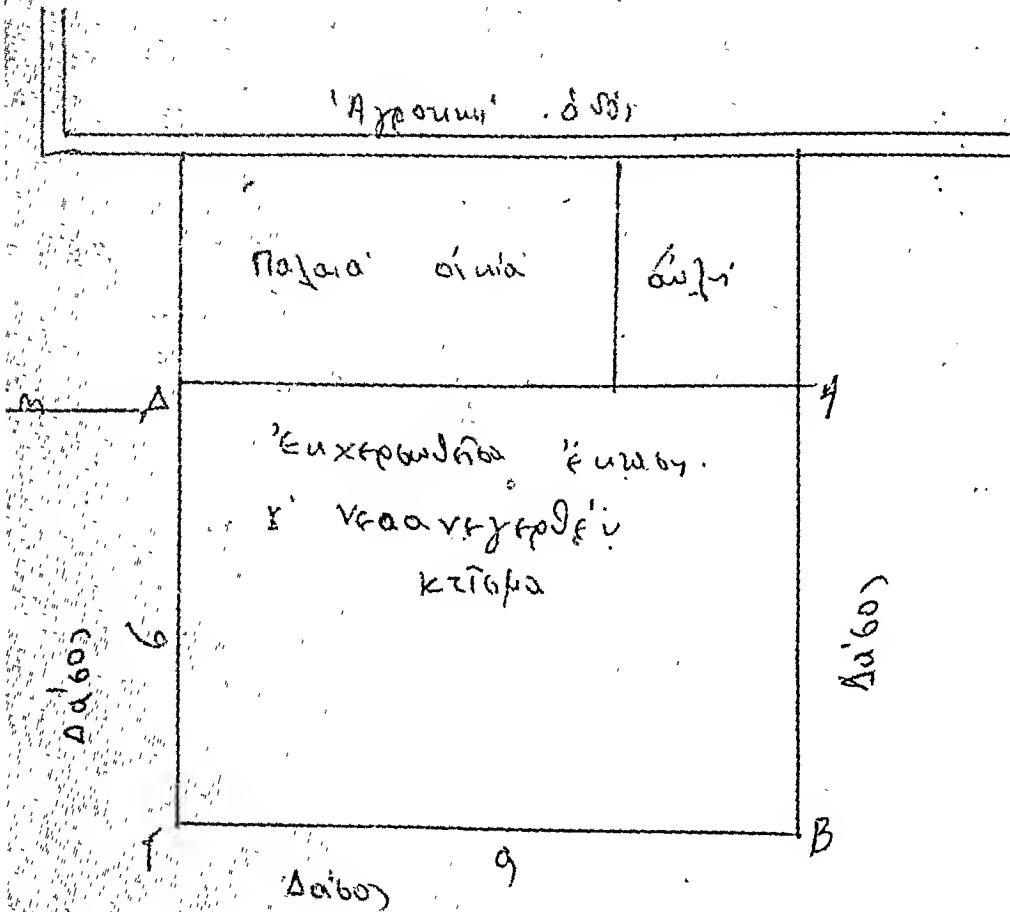 Ἀγροτική ὁδός
Παλαιά οἰκία
αὐλή
Δ
Α
Ἐκχερσωθεῖσα ἔκτασις
νεοανεγερθέν
κτῖσμα
6
Δάσος
Δάσος
Γ
Β
9
Δάσος